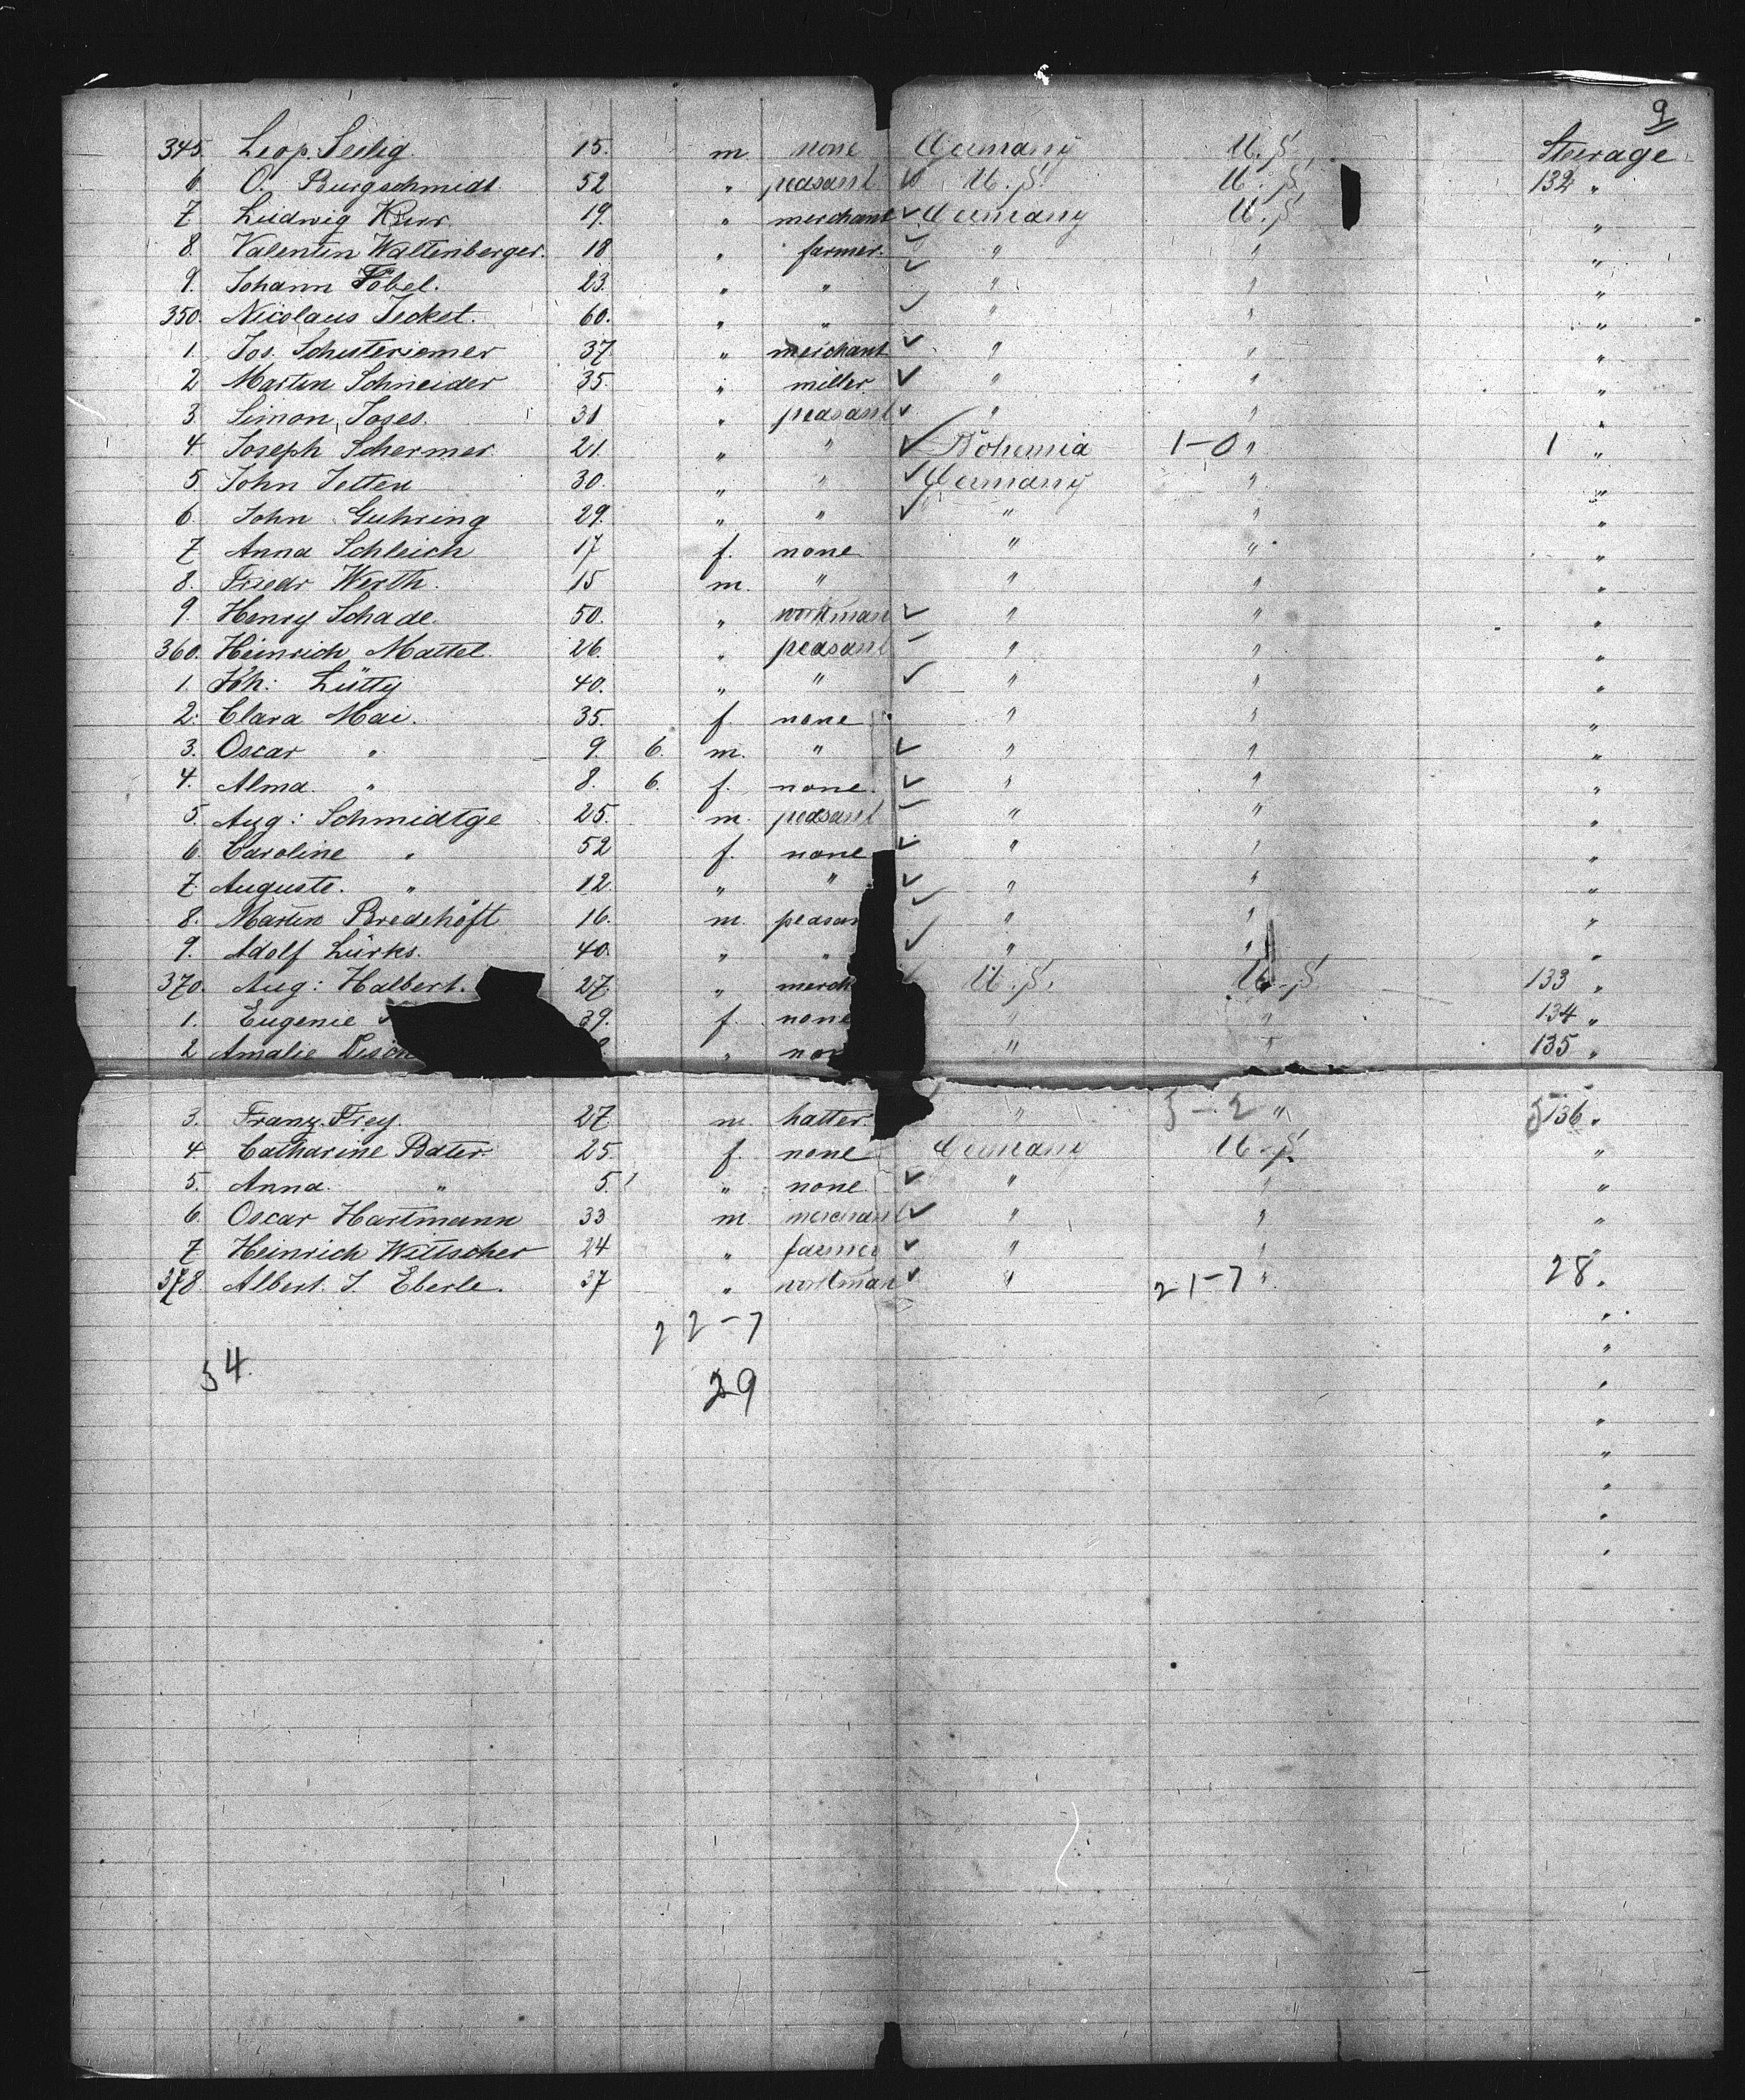 9
345. Leop. Seelig. 15. m. none Germany U.S. Steerage
6. O. Burgschmidt 52 " peasant U.S. U.S. 132 "
7 Ludwig Kurr. 19. " merchant Germany U.S. "
8. Valentin Waltenberger. 18 " farmer. " " "
9. Johann Göbel. 23. " " " " "
350. Nicolaus Jecket. 60. " " " " "
1. Jos. Schusteriemer 37 " merchant " " "
2 Martin Schneider 35. " miller " " "
3. Simon Joses. 31 " peasant " " "
4. Joseph Schermer 21. " " Bohemia 1-0 " 1 "
5. John Jetten 30. " " Germany " "
6. John Guhring 29. " " " " "
7 Anna Schleich 17 f. none " " "
8. Friedr Werth. 15 m. " " " "
9. Henry Schade. 50. " workman " " "
360. Heinrich Mattel. 26. " peasant " " "
1. Joh: Lütty 40. " " " " "
2. Clara Mai. 35. f. none " " "
3. Oscar " 9. 6. m. " " " "
4. Alma. " 8. 6. f. none. " " "
5. Aug: Schmidtge 25. m. peasant " " "
6. Caroline " 52 f. none " " "
7. Auguste. " 12. " " " " "
8. Martin Bredehöft 16. m. peasan " " "
9. Adolf Lürks. 40. " " " " "
370. Aug: Halbert. 27. " merch U.S. U.S. 133 "
1. Eugenie 39. f. none " " 134 "
2 Amalie " non " " 135 "
3. Franz Frey. 27 m. hatter. " 3-2 " 136 "
4 Catharine Bater. 25 f. none Germany U.S. "
5. Anna. " 5. " none. " " "
6. Oscar Hartmann 33 m. merchant " " "
7 Heinrich Wittscher 24 " farmer " " "
378. Albert. J. Eberle. 37 " workman " 21-7 " 28 "
22-7
34
29